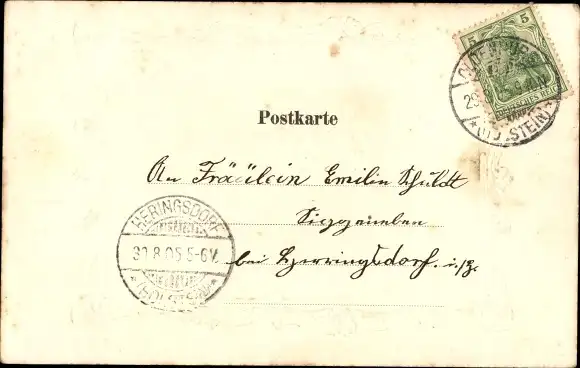 5 5
OLDENBURG
DEUTSCHES REICH
29
* (HOLSTEIN) *
Postkarte
An Fräulein Emilie Schuldt
HERINGSDORF
30.8.05.5-6V.
* (HOLSTEIN) *
bei Herringsdorf. i./H.